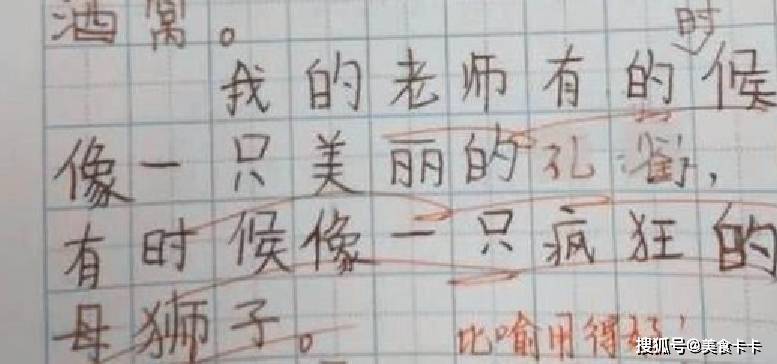 酒窝。
时
我的老师有的候
像一只美丽的孔雀,
有时候像一只疯狂的
母狮子。
比喻用得好!
搜狐号@美食卡卡